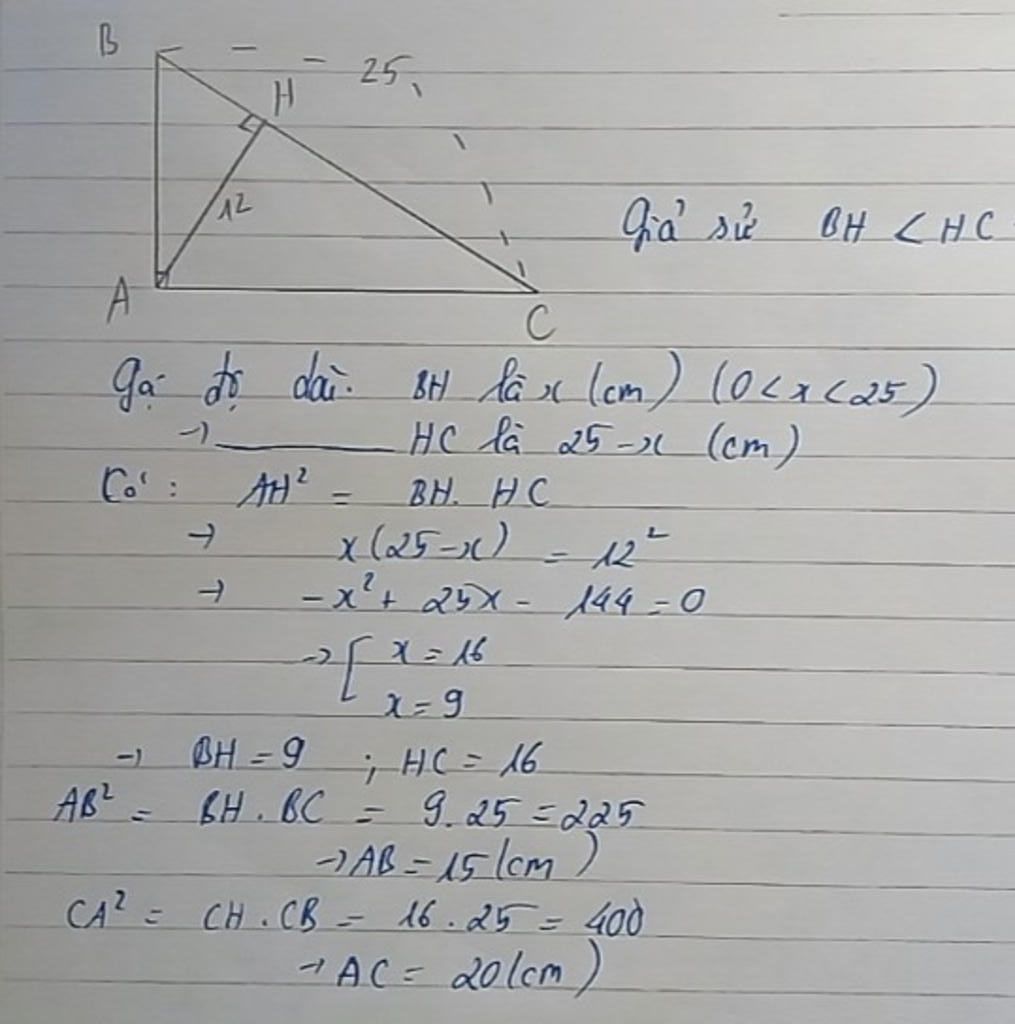 B
25
H
12
Giả sử BH < HC
A
C
Gọi độ dài BH là x (cm) (0 < x < 25)
→ ______ HC là 25 - x (cm)
Có: AH² = BH. HC
→ x(25-x) = 12²
→ -x² + 25x - 144 = 0
→ [ x = 16
x = 9
→ BH = 9 ; HC = 16
AB² = BH . BC = 9.25 = 225
→ AB = 15 (cm)
CA² = CH . CB = 16 . 25 = 400
→ AC = 20 (cm)